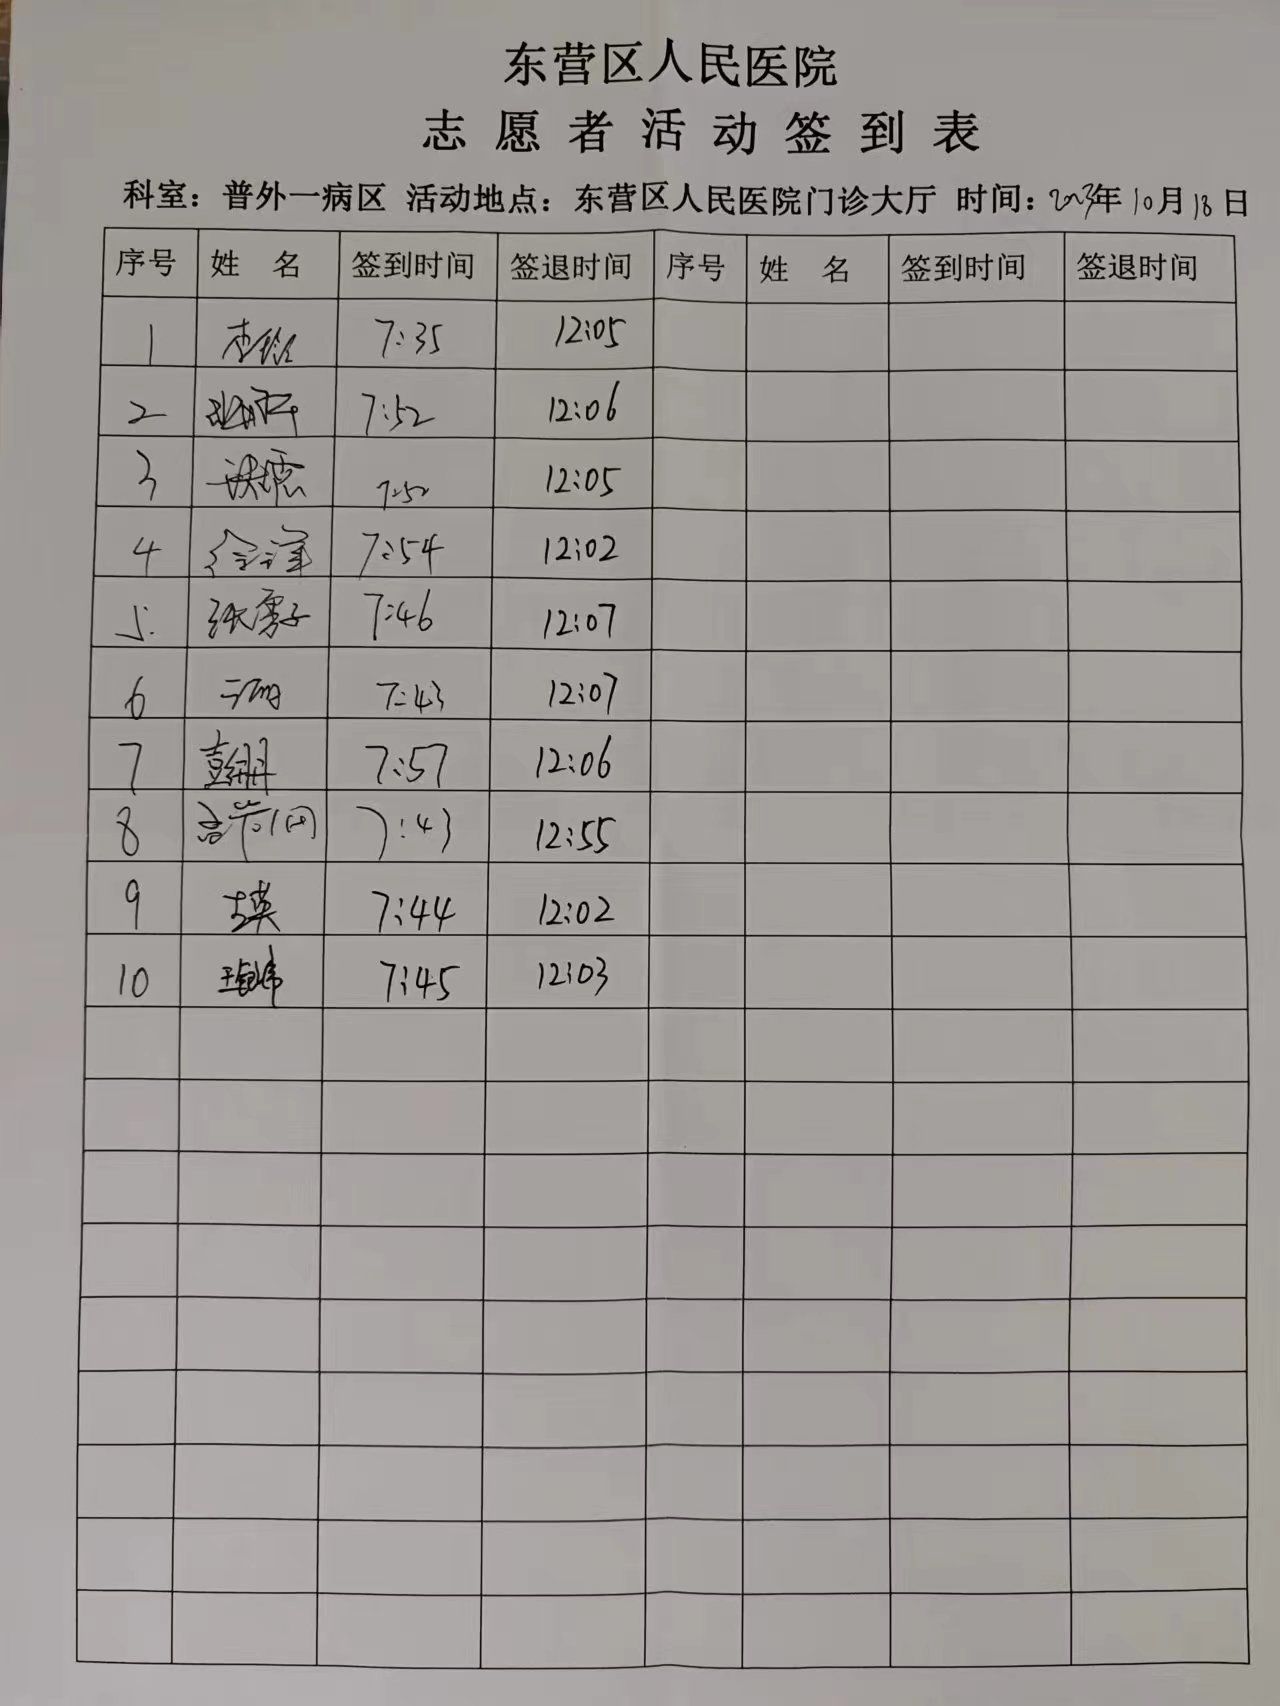 东营区人民医院
志愿者活动签到表
科室：普外一病区 活动地点：东营区人民医院门诊大厅 时间：2023年10月18日
序号 姓名 签到时间 签退时间 序号 姓名 签到时间 签退时间
1 7:35 12:05
2 7:52 12:06
3 7:52 12:05
4 徐洋 7:54 12:02
5. 张雪子 7:46 12:07
6 7:43 12:07
7 彭丹丹 7:57 12:06
8 7:43 12:55
9 7:44 12:02
10 7:45 12:03